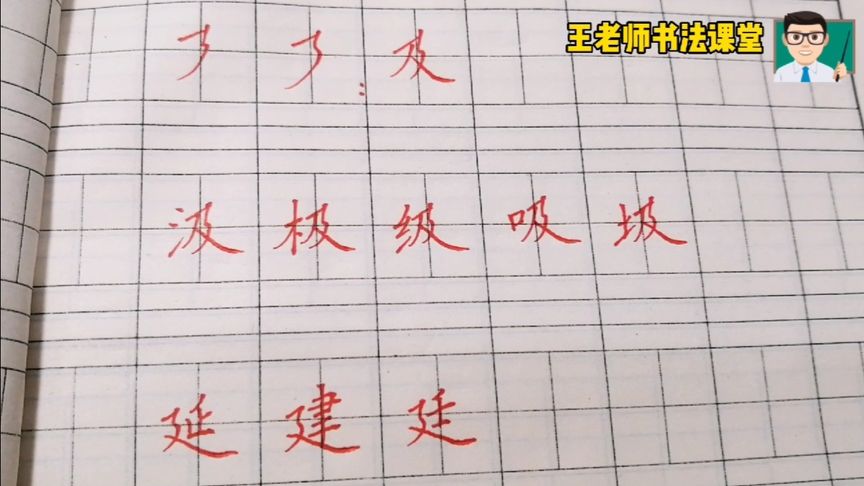 王老师书法课堂
㇋ ㇋ : 及
汲 极 级 吸 圾
延 建 廷